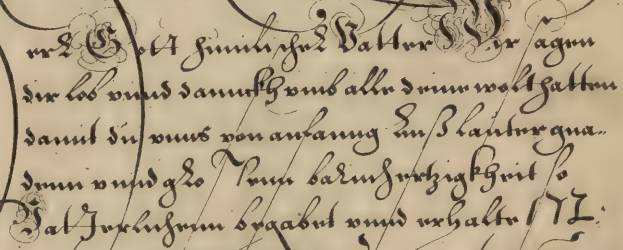 err Gott himlischer Vatter Wir sagen
dir lob vnnd dannckh vmb alle deine wolthatten
damit du vnns von anfanng auß lauter gna-
denn vnnd barmhertzigkheit so
Vatterlichenn begabet vnnd erhalten